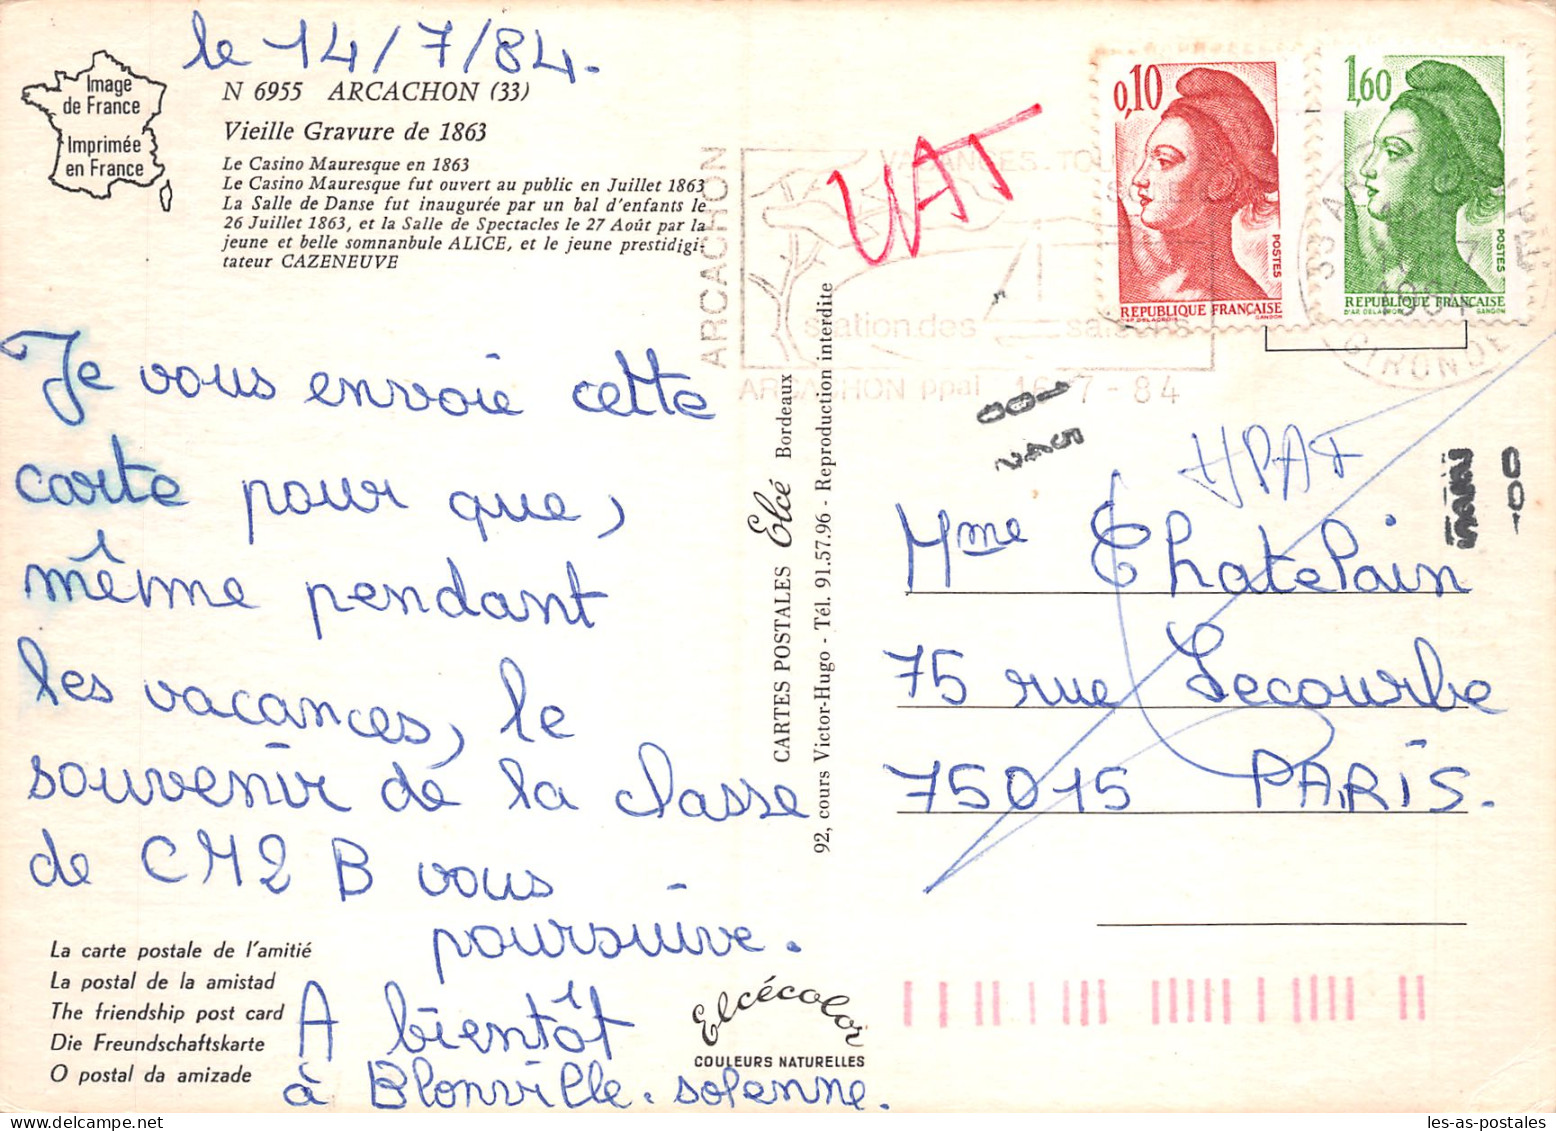 le 14/7/84.
Image
de France
Imprimée
en France
N 6955 ARCACHON (33)
Vieille Gravure de 1863
Le Casino Mauresque en 1863
Le Casino Mauresque fut ouvert au public en Juillet 1863
La Salle de Danse fut inaugurée par un bal d'enfants le
26 Juillet 1863, et la Salle de Spectacles le 27 Août par la
jeune et belle somnanbule ALICE, et le jeune prestidigi-
tateur CAZENEUVE
Je vous envoie cette
carte pour que,
même pendant
les vacances, le
souvenir de la classe
de CM2 B vous
poursuive.
A bientôt
à Blonville. solenne.
La carte postale de l'amitié
La postal de la amistad
The friendship post card
Die Freundschaftskarte
O postal da amizade
Elcécolor
COULEURS NATURELLES
CARTES POSTALES Elcé Bordeaux
92, cours Victor-Hugo - Tél. 91.57.96 - Reproduction interdite
ARCACHON
VACANCES
station des saisons
ARCACHON ppal 16-7-84
UAT
0,10
POSTES
REPUBLIQUE FRANÇAISE
D'AP. DELACROIX GANDON
1,60
POSTES
REPUBLIQUE FRANÇAISE
D'AP. DELACROIX GANDON
33 ARCACHON
GIRONDE
Mme Chatelain
75 rue Lecourbe
75015 PARIS.
les-as-postales